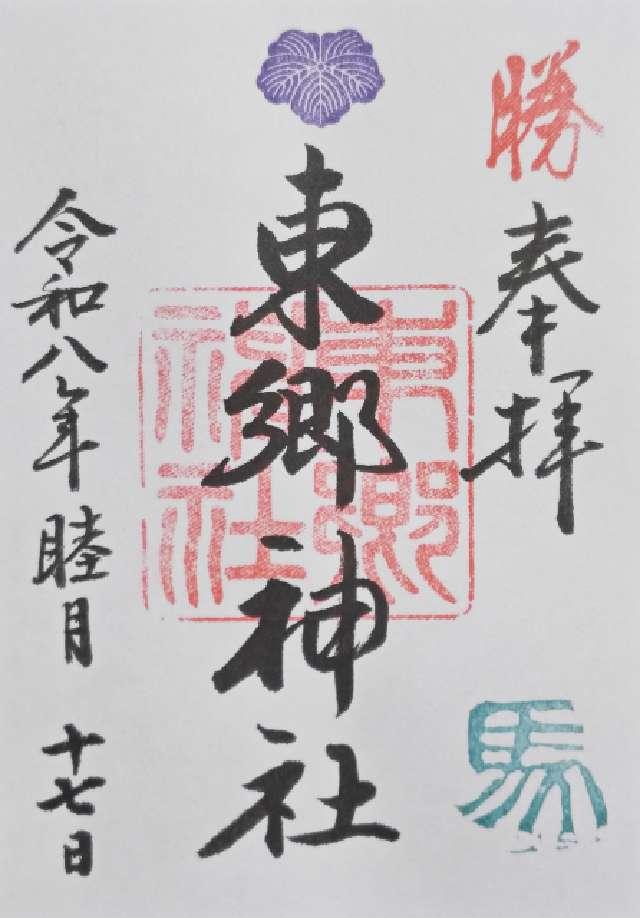 勝
奉拝
馬
東郷神社
東郷神社
令和八年睦月十七日